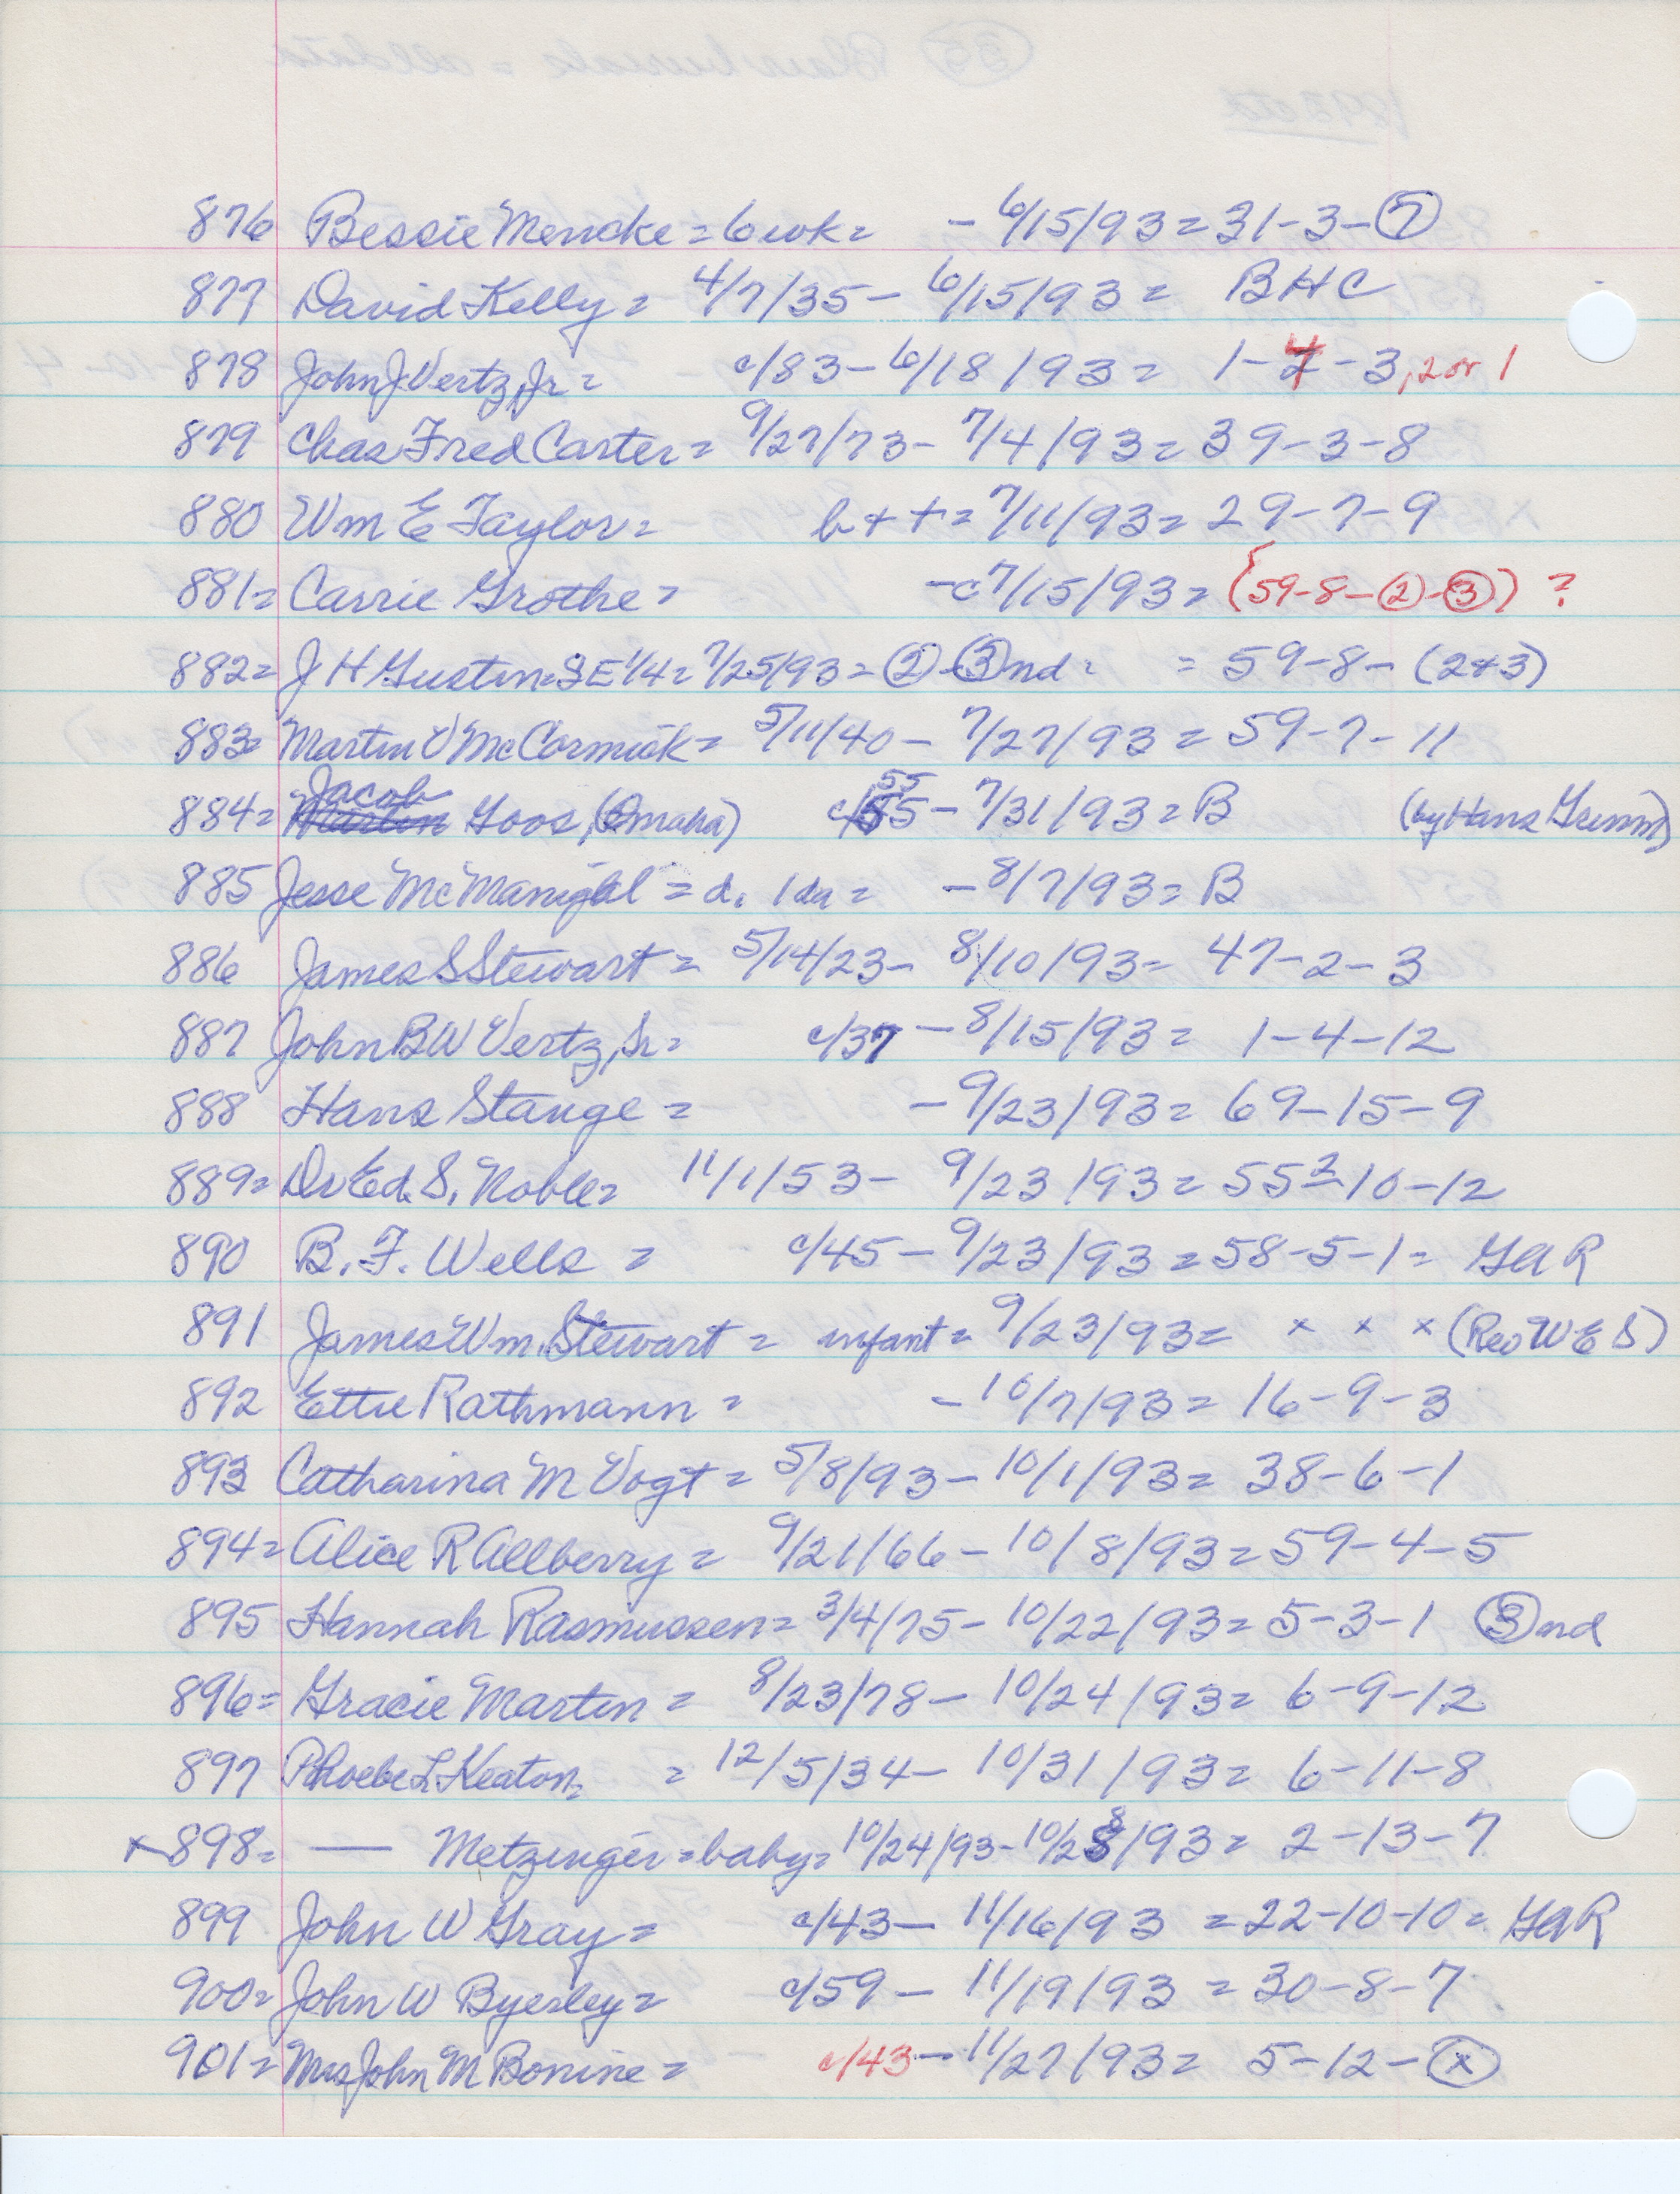 876 Bessie Mencke = 6 wk = - 6/15/93 = 31-3-(7)
877 David Kelly = 4/7/35 - 6/15/93 = BHC
878 John J Vertz, Jr = c/83 - 6/18/93 = 1-4-3, 2 or 1
879 Chas Fred Carter = 9/27/73 - 7/4/93 = 39-3-8
880 Wm E Taylor = b + t = 7/11/93 = 29-7-9
881 = Carrie Grothe = - c 7/15/93 = (59-8-(2)-(3)) ?
882 = J H Gustin = SE 1/4 = 7/25/93 = (2) (3) nd = = 59-8-(2+3)
883 = Martin V McCormick = 5/11/40 - 7/27/93 = 59-7-11
884 = Martin Jacob Goos, (Omaha) c/55 55 - 7/31/93 = B (by Hans Grimm)
885 Jesse McManigal = d. 1 da = - 8/7/93 = B
886 James S Stewart = 5/14/23 - 8/10/93 = 47-2-3
887 John B W Vertz, Sr = c/37 - 8/15/93 = 1-4-12
888 Hans Stange = - 9/23/93 = 69-15-9
889 = Dr Ed. S. Noble = 11/1/53 - 9/23/93 = 55 2-10-12
890 B. F. Wells = c/45 - 9/23/93 = 58-5-1 = GAR
891 James Wm. Stewart = infant = 9/23/93 = x x x (Rev W E S)
892 Ettie Rathmann = - 10/7/93 = 16-9-3
893 Catharina M Vogt = 5/8/93 - 10/1/93 = 38-6-1
894 = Alice R Allberry = 9/21/66 - 10/8/93 = 59-4-5
895 Hannah Rasmussen = 3/4/75 - 10/22/93 = 5-3-1 (3) nd
896 = Gracie Martin = 8/23/78 - 10/24/93 = 6-9-12
897 Phoebe L Keaton = = 12/5/34 - 10/31/93 = 6-11-8
x 898 = — Metzinger = baby = 10/24/93 - 10/28 8/93 = 2-13-7
899 John W Gray = c/43 - 11/16/93 = 22-10-10 = GAR
900 = John W Byerley = c/59 - 11/19/93 = 30-8-7
901 = Mrs John M Bonine = c/43 - 11/27/93 = 5-12-(x)